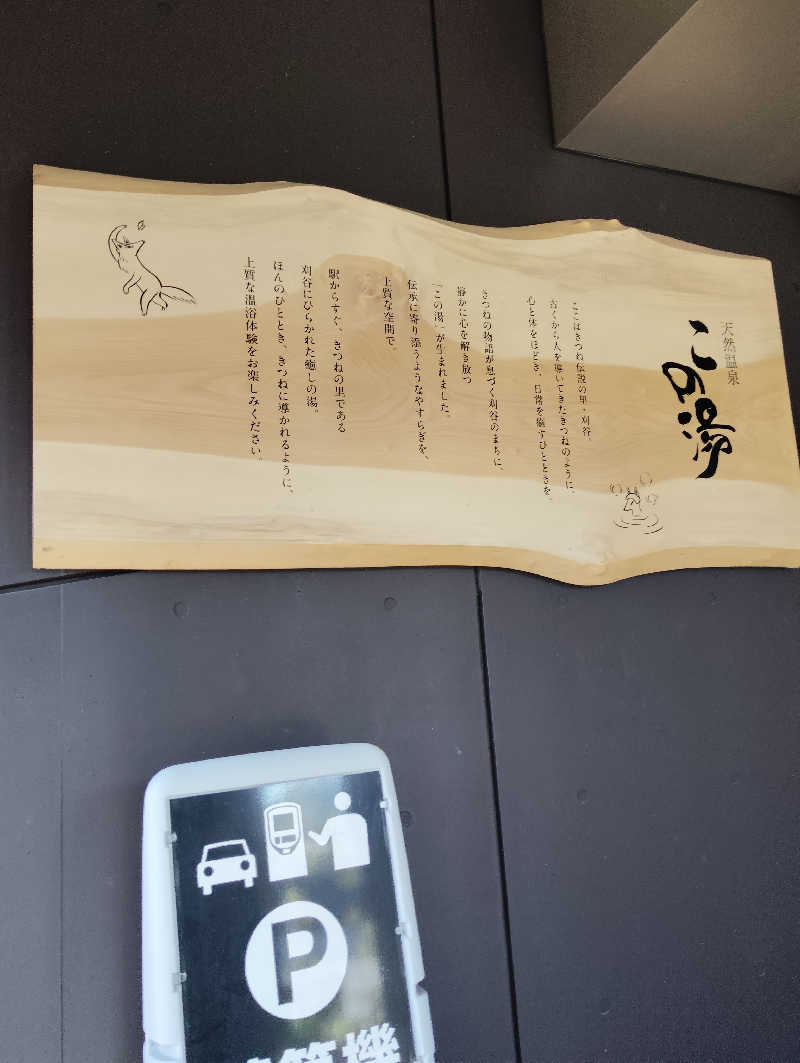 天然温泉
この湯
ここはきつね伝説の里・刈谷。
古くから人を導いてきたきつねのように、
心と体をほどき、日常を癒すひとときを。
きつねの物語が息づく刈谷のまちに、
静かに心を解き放つ
「この湯」が生まれました。
伝承に寄り添うようなやすらぎを、
上質な空間で。
駅からすぐ、きつねの里である
刈谷にひらかれた癒しの湯。
ほんのひととき、きつねに導かれるように、
上質な温浴体験をお楽しみください。
P
算機